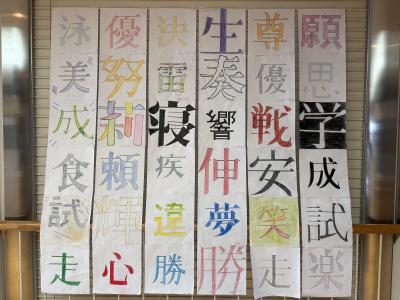 願思学成試楽
尊優戦安笑走
生奏響伸夢勝
決雷寝疾違勝
優努莉頼輝心
泳美成食試走